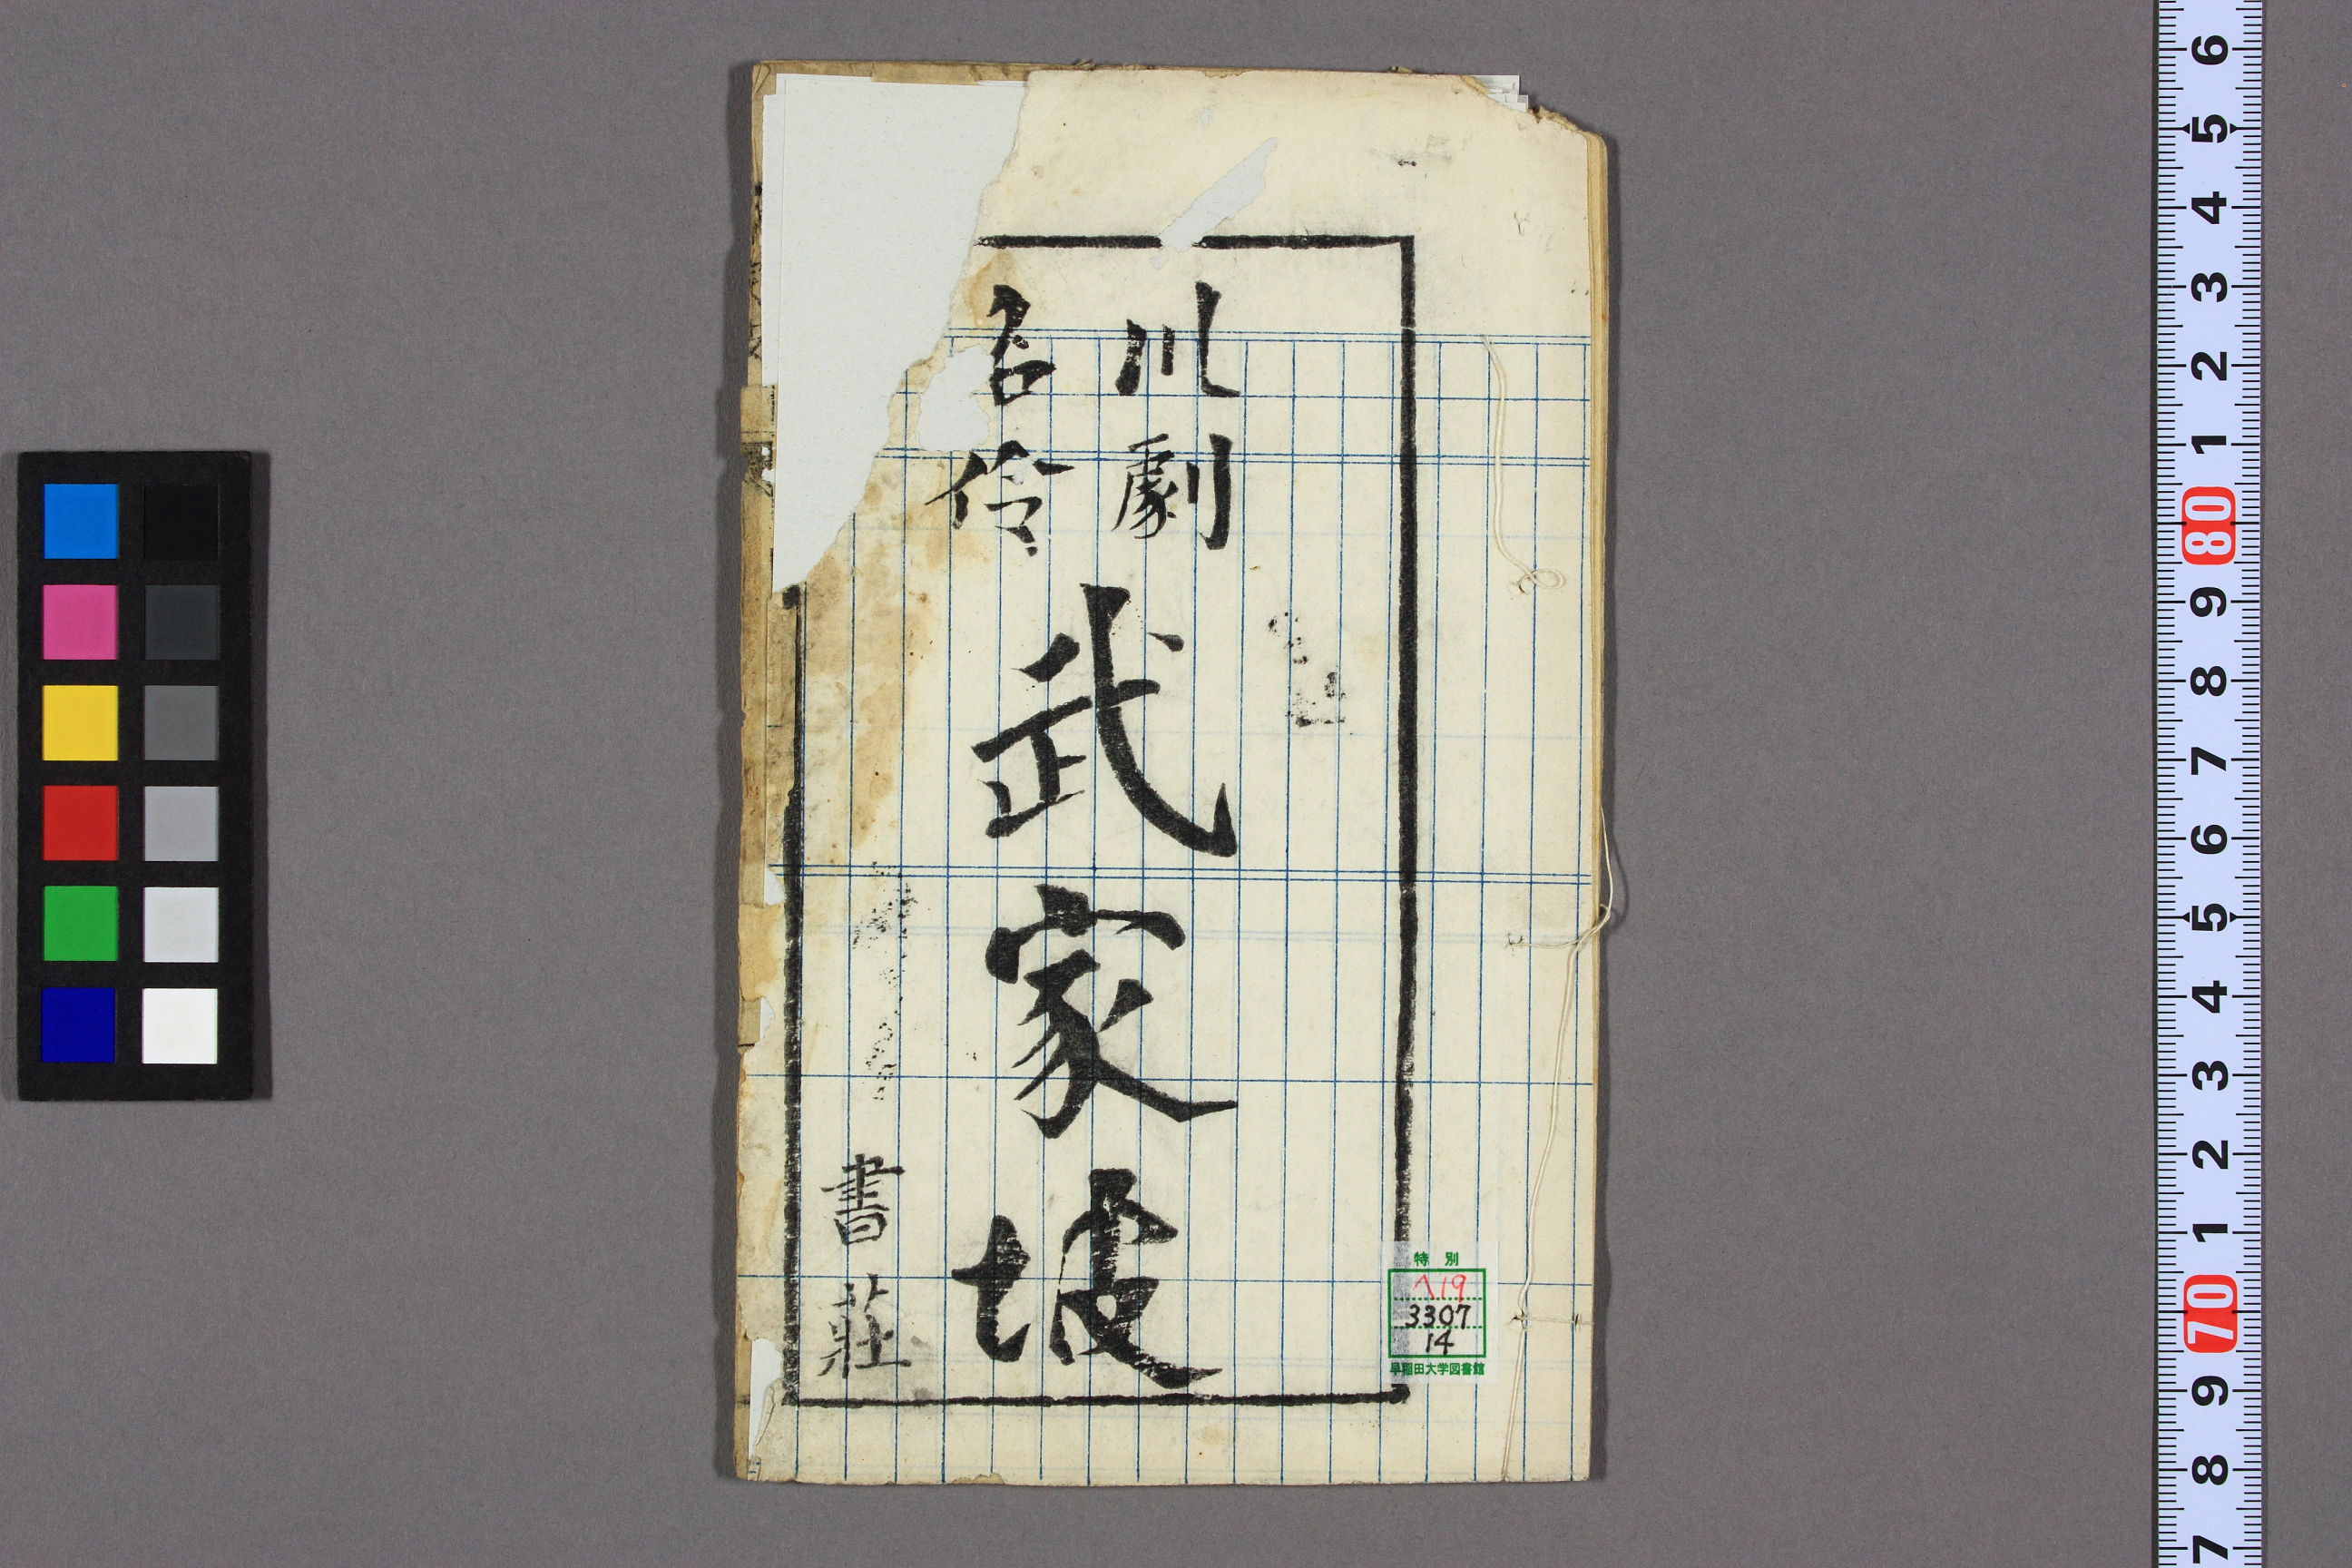 川劇
名伶
武家坡
書莊
特別
ヘ19
3307
14
早稲田大学図書館
6
5
4
3
2
1
80
9
8
7
6
5
4
3
2
1
70
9
8
7